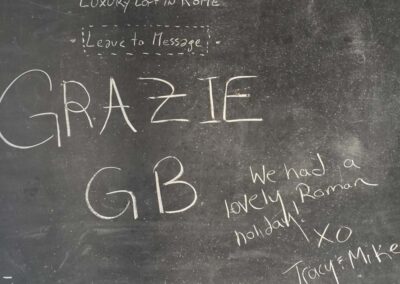 LUXURY LOFT IN ROME
Leave to Message
GRAZIE
GB
We had a
lovely Roman
holiday!
XO
Tracy & Mike